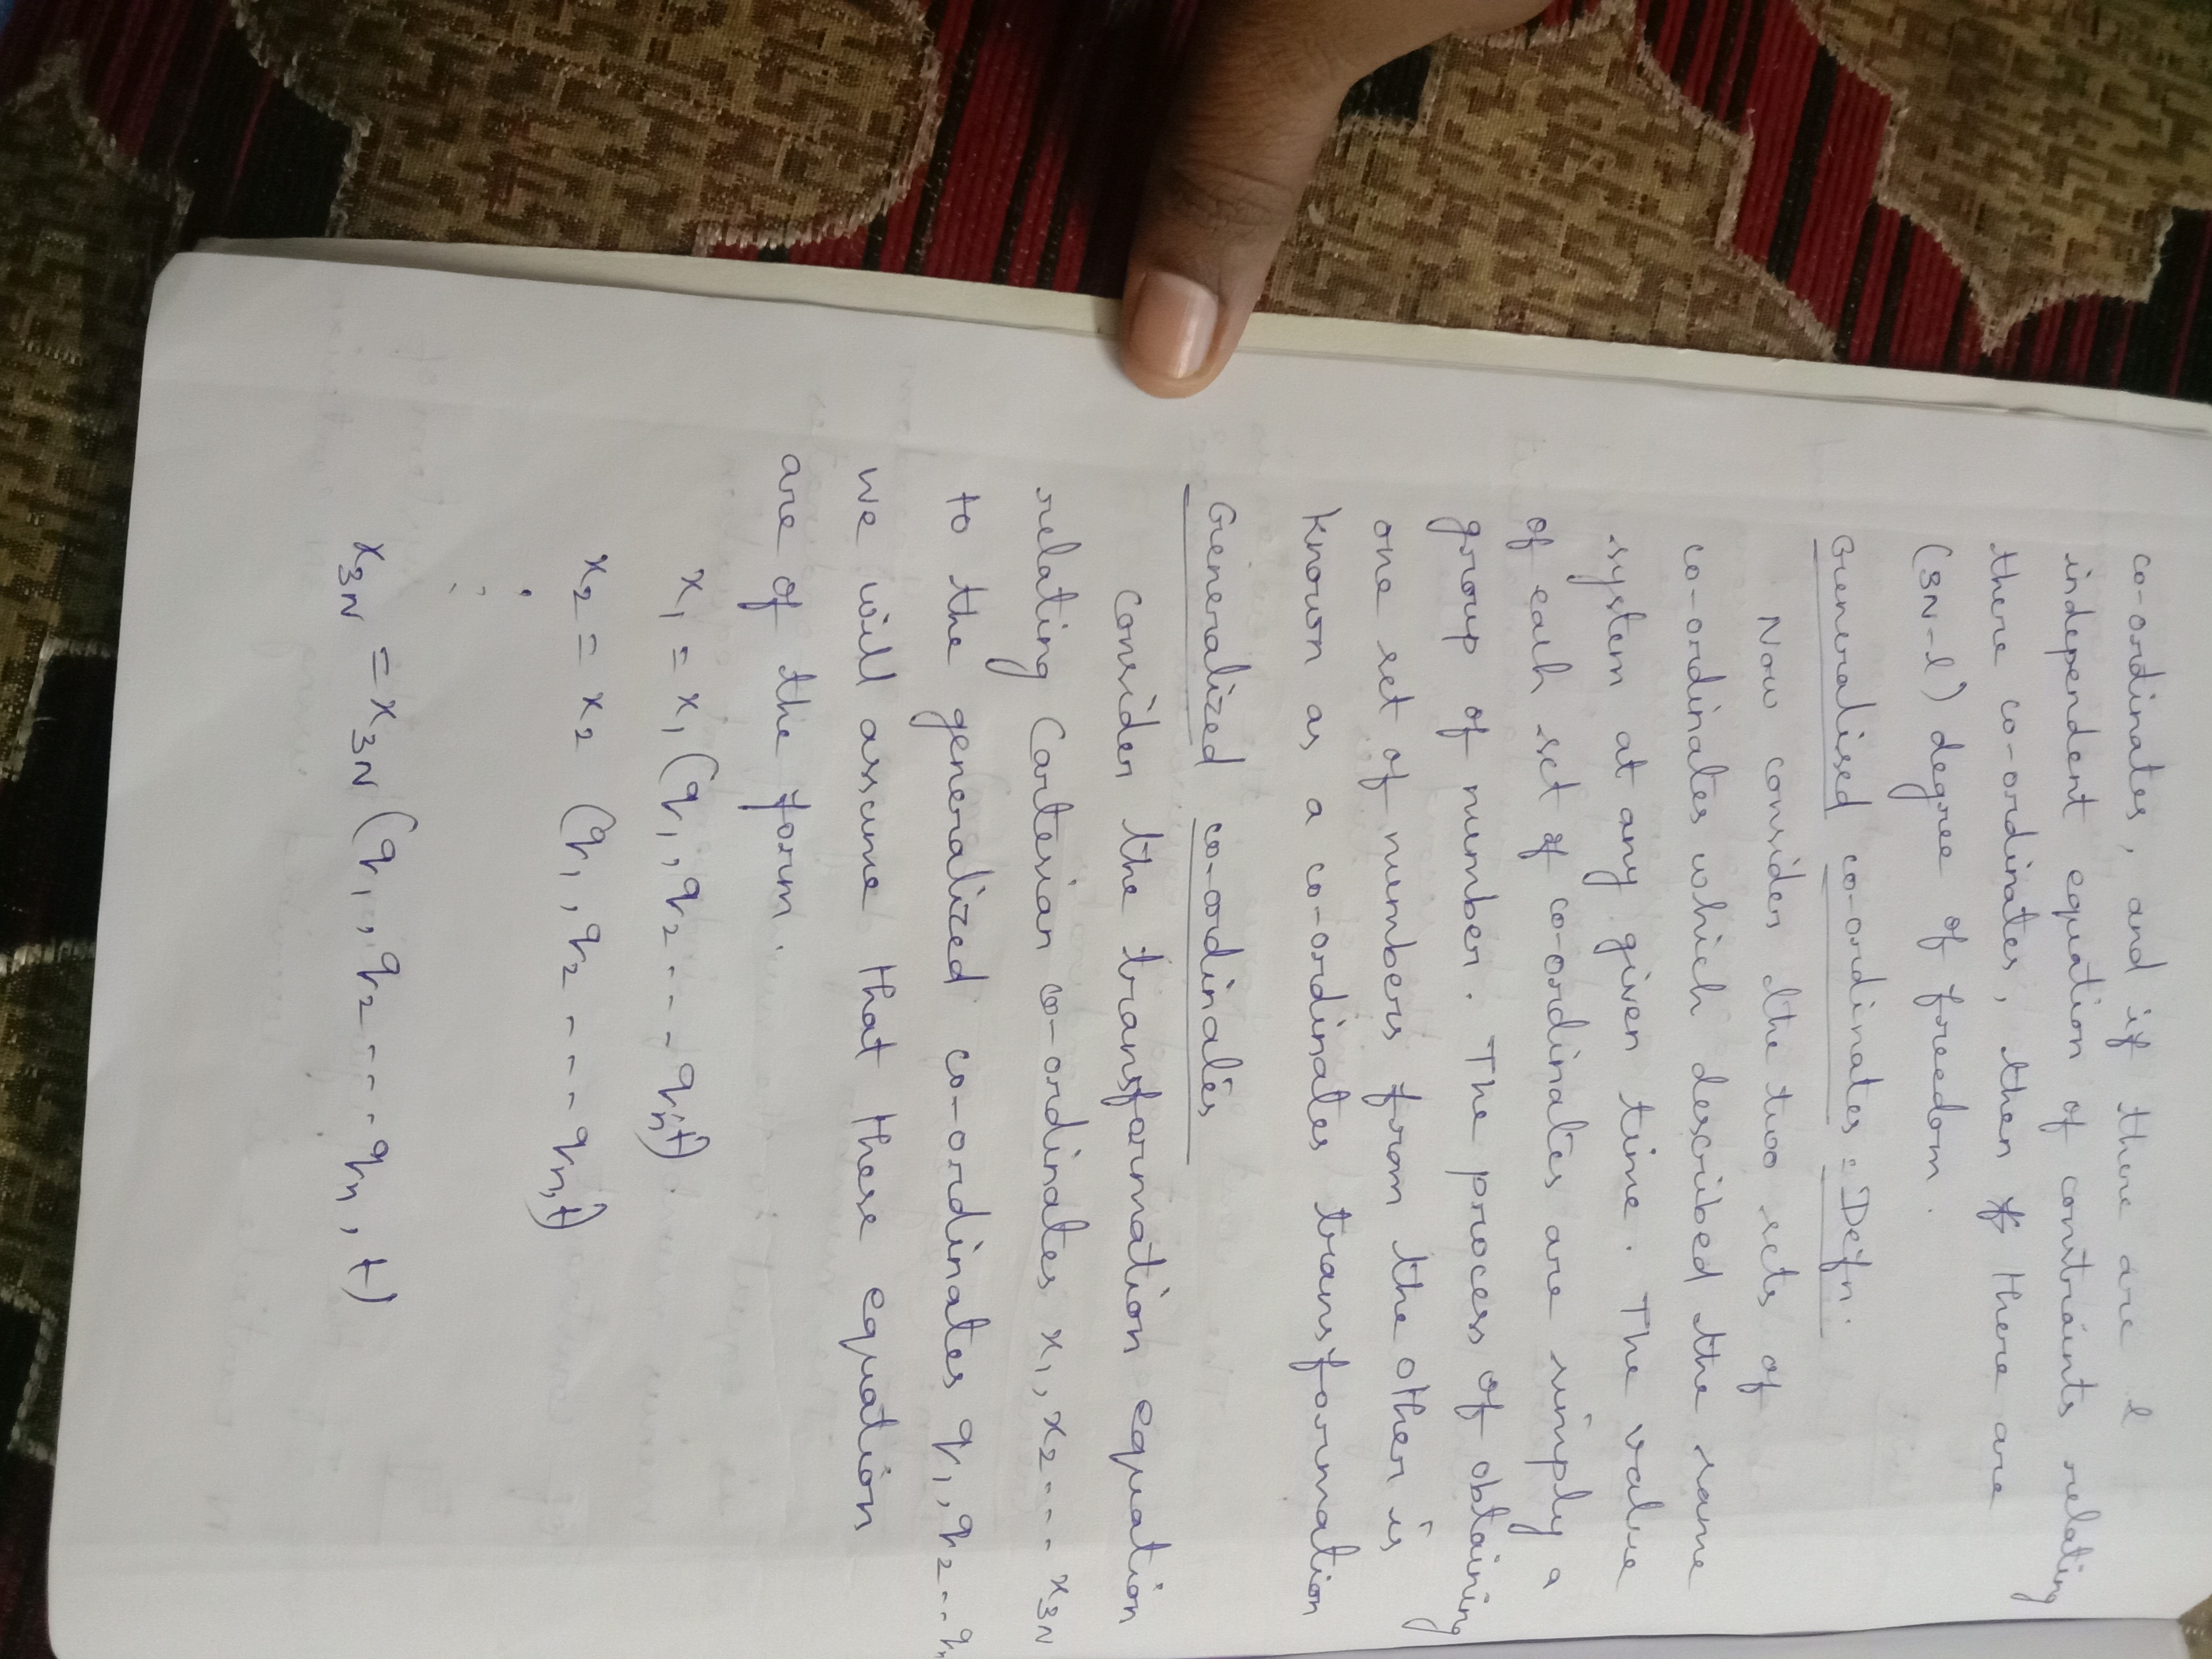 co-ordinates, and if there are l
independent equation of contraints relating
there co-ordinates, then if there are
(3N-l) degree of freedom.
Generalised co-ordinates = Defn.
Now consider the two sets of
co-ordinates which described the same
system at any given time. The value
of each set of co-ordinates are simply a
group of number. The process of obtaining
one set of numbers from the other is
known as a co-ordinates transformation
Generalized co-ordinates
Consider the transformation equation
relating Cartesian co-ordinates x₁, x₂ ---- x₃N
to the generalized co-ordinates q₁, q₂ -- qₙ
we will assume that these equation
are of the form.
x₁ = x₁ (q₁, q₂ --- qₙ, t).
x₂ = x₂ (q₁, q₂ ---- qₙ, t)
⋮
x₃N = x₃N (q₁, q₂ ---- qₙ, t)